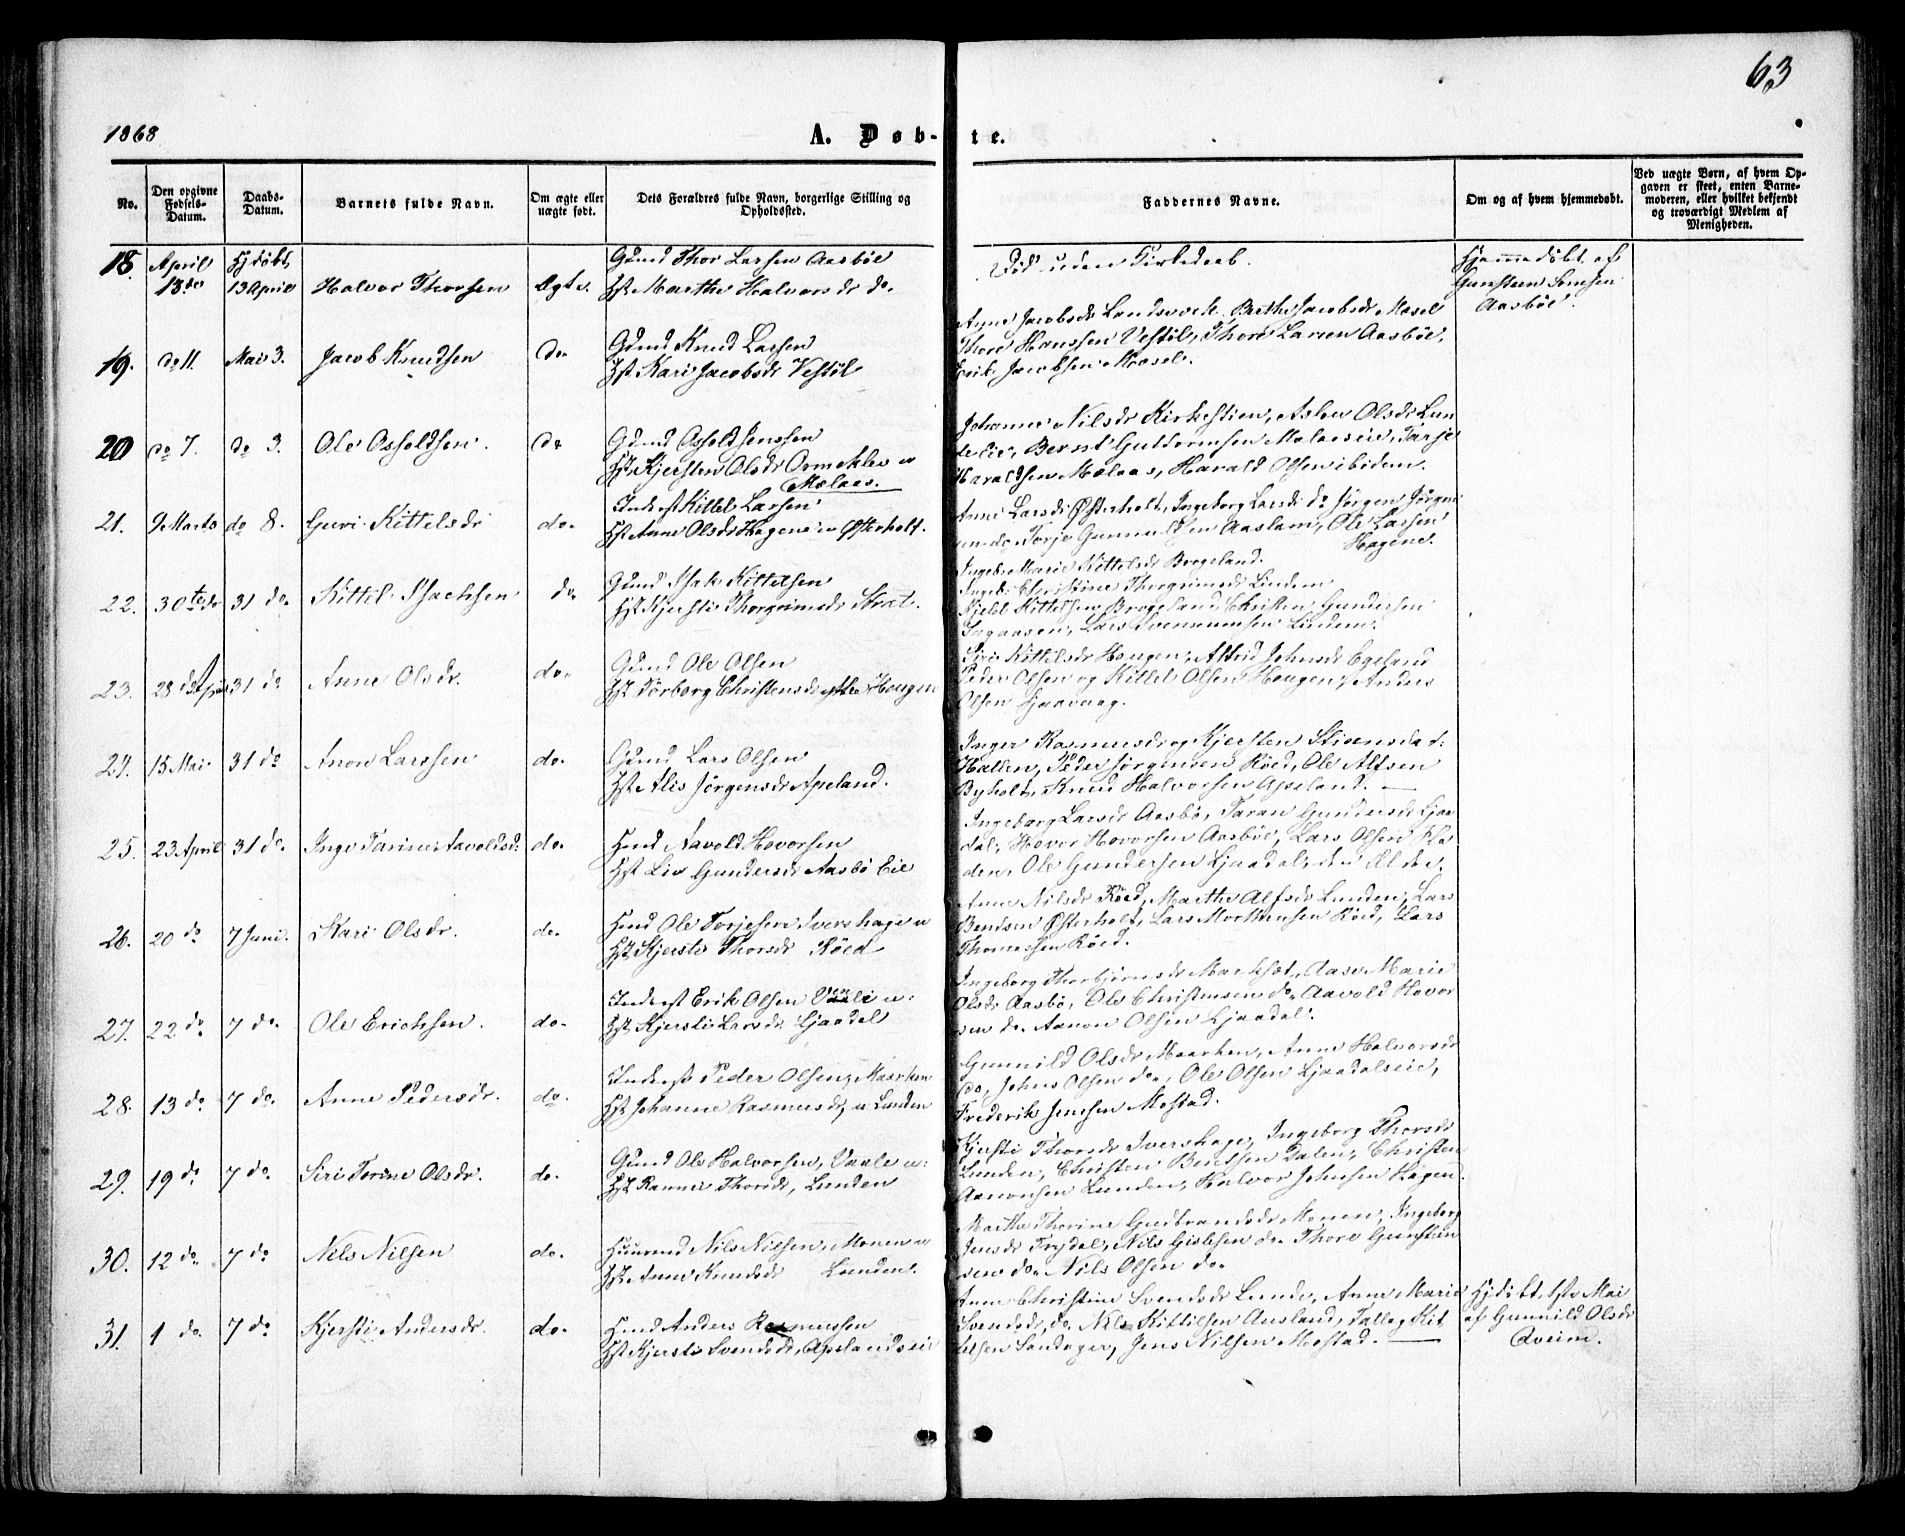 63
1868
A. Døb-te.
No.
Den opgivne Fødsels-Datum.
Daabs-Datum.
Barnets fulde Navn.
Om ægte eller uægte født.
Dets Forældres fulde Navn, borgerlige Stilling og Opholdssted.
Faddernes Navne.
Om og af hvem hjemmedøbt.
Ved uægte Børn, af hvem Opgaven er skeet, enten Barnemoderen, eller hvilket bekjendt og troværdigt Medlem af Menigheden.
18. April 13de Hjdøbt 13 April Halvor Thorsen Ægte.
Gmd Thor Larsen Aasbøe
Hst Marthe Halvorsdr do.
Død uden Kirkedaab.
Hjemmedøbt af
Gunsteen
Aasbøe.
19. do 11. Mai 3. Jacob Knudsen do
Gmd Knud Larsen
Hst Kari Jacobsdr Vestøl
Anne Jacobsdr Landsverk. Berthe Jacobsdr Mosel
Thore Hanssen Vestøl, Thore Larsen Aasbøe,
Erik Jacobsen Mosel.
20 do 7. do 3. Ole Osfoldsen. do
Gmd Osfold Jenssen
Hst Kjersten Olsdr Ormeklev
Molaas.
Johanne Nilsdr Kirkestien, Aslou Olsdr Lun
Bernt Guttormsen Molaaseie, Tarje
Haraldsen Molaas, Harald Olsen ibidem.
21. 9 Marts do 8. Guri Kittelsdr do.
Inderst Kittel Larsen
Hst Anne Olsdr Hagene Østerholt.
Anne Larsdr Østerholt, Ingeborg Larsdr do Jørgen Jørgen
sen do. Torje Aasland, Ole Larsen
Hagene.
22. 30te do 31 do. Kittel Isachsen do
Gmd Isak Kittelsen
Hst Kjersti Thorgrimsdr
Ingeb. Marie Kittelsdr Brogeland.
Christine Thorgrimsdr Lindem
Kittelsen Brogeland, Christen Gundersen
Lars Lindem.
23. 28 April 31 do Anne Olsdr. do.
Gmd Ole Olsen
Hst Torborg Christensdr Hougen
Siri Kittelsdr Hougen, Astrid Johnsdr Egeland
Peder Olsen og Kittel Olsen Hougen, Anders
Olsen
24. 15 Mai 31 do Anon Larssen do.
Gmd Lars Olsen
Hst Alis Jørgensdr Apeland.
Inger Rasmusdr og Kjersten
Hallen, Peder Jørgensen Røed, Ole Alfsen
Byholt, Knud Halvorsen Apeland.
25. 23 April 31 do. Inge Tarine Aavoldsd. do.
Hmd Aavold Hovorsen
Hst Liv Gundersdr Aasbø Eie
Ingeborg Larsdr Aasbø, Taran Gundersdr Ljaa
dal, Hovor Hovorsen Aasbøe, Lars Olsen
den, Ole Gundersen Ljaadal,
26. 20 do 7 Juni. Kari Olsdr. do.
Hmd Ole Torjesen Ivershage
Hst Kjersti Thorsdr Røed
Anne Nilsdr Røed, Marthe Alfsdr Lunden, Lars
Bendsen Østerholt, Lars Mortensen Røed, Lars
Thomassen Røed.
27. 22 do 7 do. Ole Erichsen. do.
Inderst Erik Olsen
Hst Kjersti Larsdr Ljaadal
Ingeborg Thorbjørnsdr Aase Marie
Olsdr Aasbø, Ole Christensen do. Aavold Hovor
sen do. Aanon Olsen Ljaadal.
28. 13 do 7 do. Anne Pedersdr. do.
Inderst Peder Olsen, Maarken
Hst Johanne Rasmusdr, Lunden
Gunnild Olsdr Maarken, Anne Halvorsdr
do, Johns Olsen do., Ole Olsen Ljaadalseie,
Frederik Jensen Mostad.
29. 19 do 7 do. Siri Torine Olsdr. do.
Gmd Ole Halvorsen, Vaale
Hst Thorsdr, Lunden
Kjersti Thorsdr Ivershage, Ingeborg Thorsdr
Lunden, Christen Bentsen Dalen, Christen
Aanonsen Lunden, Halvor Johnsen Hagen.
30. 12 do 7 do Nils Nilsen do.
Huusmd Nils Nilsen, Monen
Hst Anne Knudsdr Lunden.
Marthe Thorine Gudbrandsdr Monen, Ingeborg
Jensdr Trydal, Nils Gislesen do. Thore Gunsteen
sen do. Nils Olsen do.
31. 1 do. 7 do Kjersti Andersdr. do.
Hmd Anders Rasmussen
Hst Kjersti Svendsdr, Apelandseie
Anne Christine Svendsdr Lunde, Anne Marie
Svendsdr, do. Nils Kittilsen Ausland, Tallag Kit
telsen Sandager, Jens Nilsen Mostad.
Hjdøbt, 1ste Mai
af Gunnild Olsdr
Qveim.